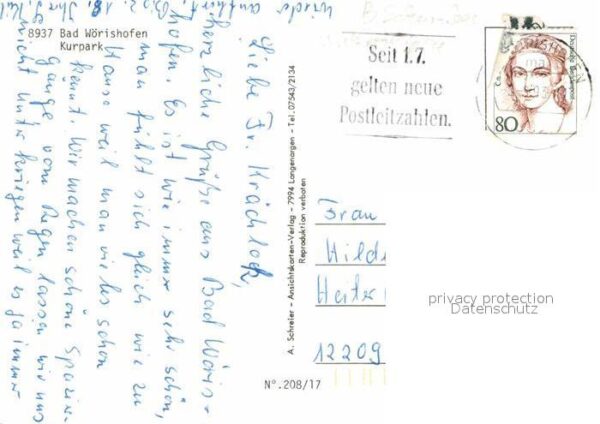 8937 Bad Wörishofen
Kurpark
Liebe Fr. Krächlock,
herzliche Grüße aus Bad Wöris-
hofen. Es ist wie immer sehr schön,
man fühlt sich gleich wie zu
Hause weil man vieles schon
kennt. Wir machen schöne Spazier-
gänge vom Regen lassen wir uns
nicht unterkriegen weil es ja immer
wieder aufhört.
Ihr
A. Schreier - Ansichtskarten-Verlag - 7994 Langenargen - Tel. 07543/2134
Reproduktion verboten
Nº.208/17
Seit 1.7.
gelten neue
Postleitzahlen.
80
Frau
Hilde
12209
privacy protection
Datenschutz